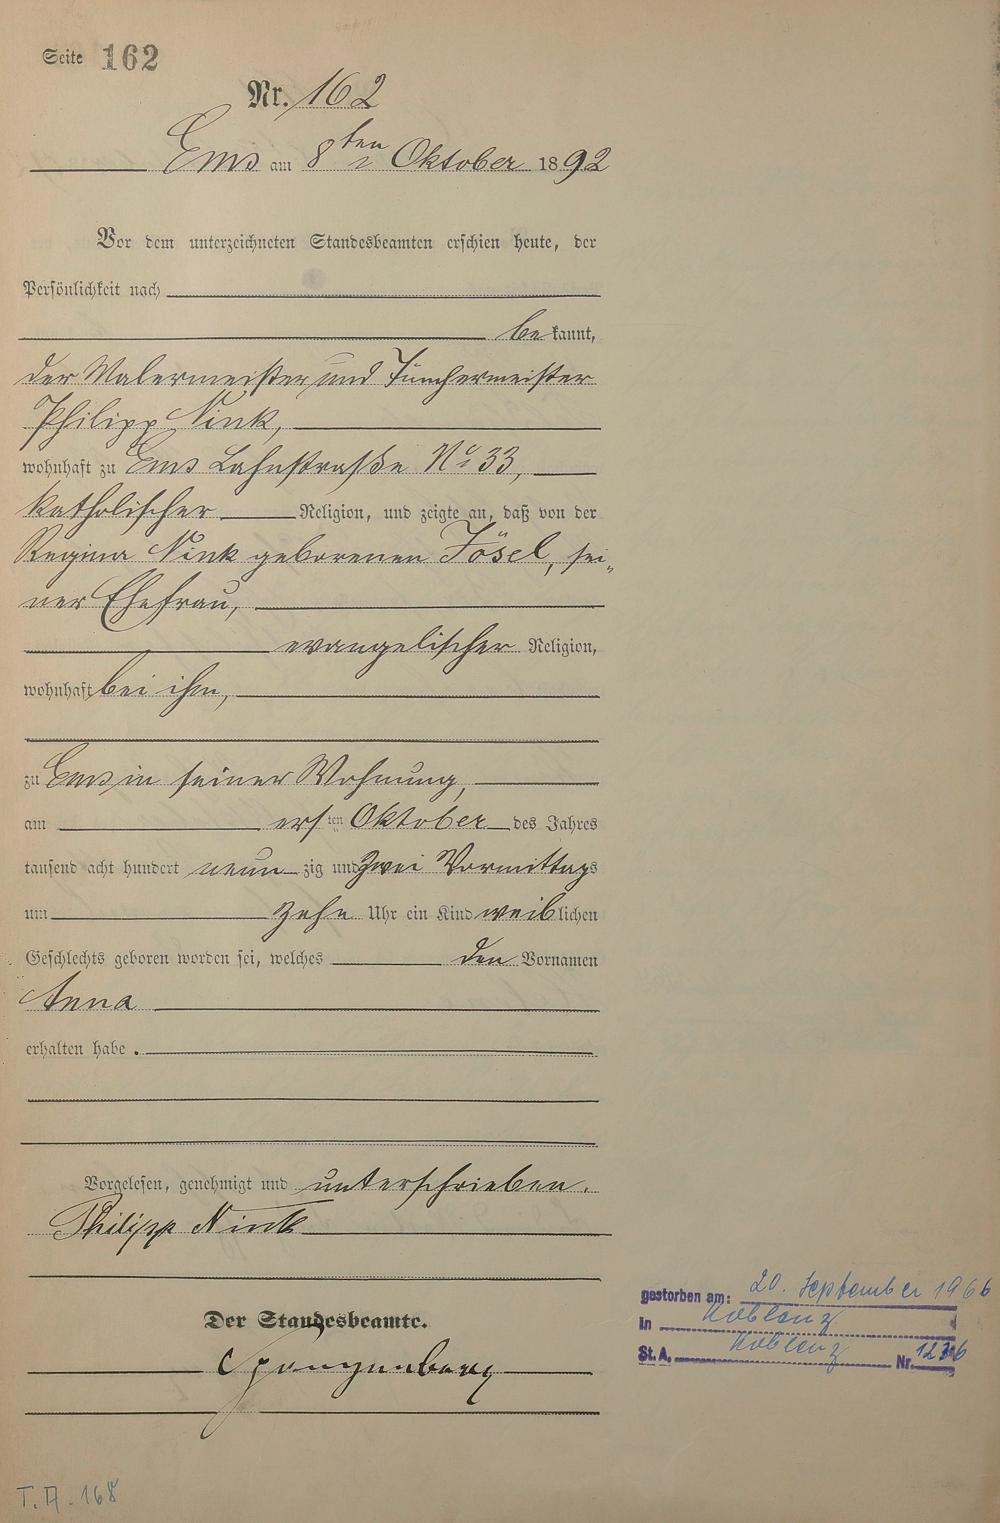 Seite 162
Nr. 162
Ems am 8ten Oktober 1892
Vor dem unterzeichneten Standesbeamten erschien heute, der
Persönlichkeit nach
bekannt,
der Malermeister und Tünchermeister
Philipp Nink,
wohnhaft zu Ems Lahnstraße No 33,
katholischer Religion, und zeigte an, daß von der
Regina Nink geborenen Jösel, sei-
ner Ehefrau,
evangelischer Religion,
wohnhaft bei ihm,
zu Ems in seiner Wohnung,
am ersten Oktober des Jahres
tausend acht hundert neunzig und zwei Vormittags
um zehn Uhr ein Kind weiblichen
Geschlechts geboren worden sei, welches den Vornamen
Anna
erhalten habe.
Vorgelesen, genehmigt und unterschrieben.
Philipp Nink
Der Standesbeamte.
Spangenberg
gestorben am: 20. September 1966
In Koblenz
St. A. Koblenz Nr. 1236
T. A. 168